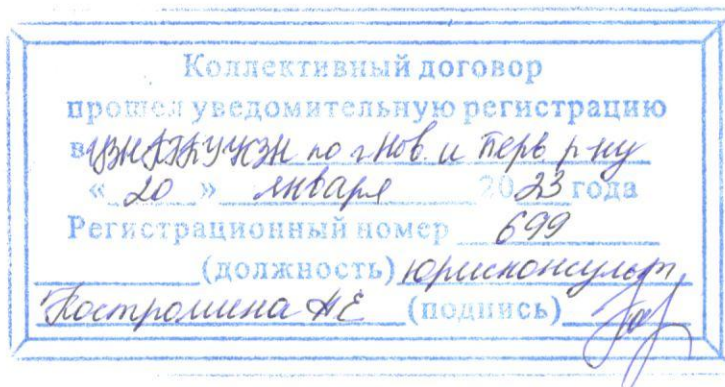 Коллективный договор
прошел уведомительную регистрацию
в по г Нов. и Перв р-ну
« 20 » января 2023 года
Регистрационный номер 699
(должность) юрисконсульт
Костромина НЕ (подпись)